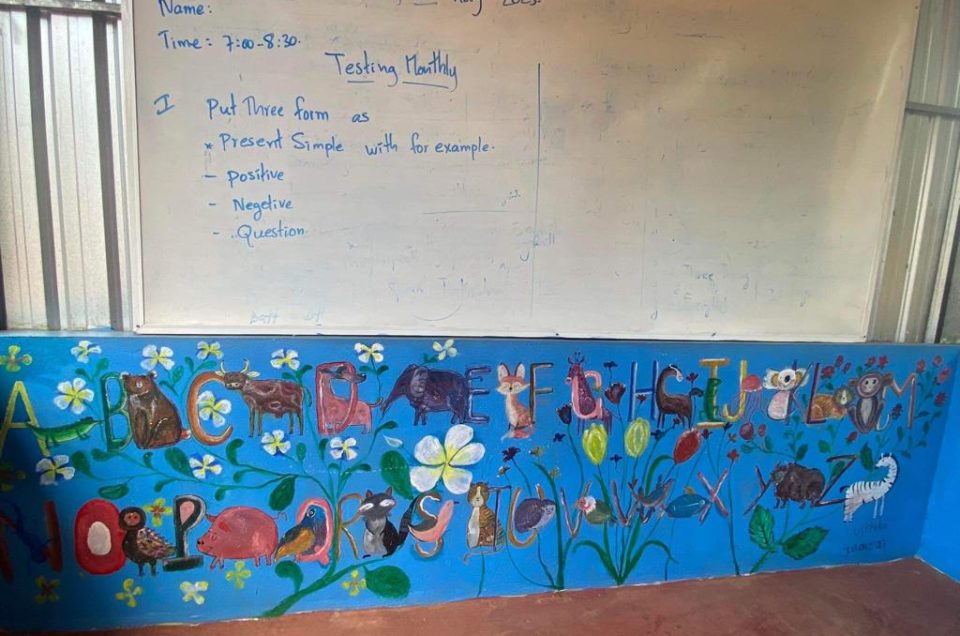 Name:
Time: 7:00-8:30.
Testing Monthly
I Put Three form as
* Present Simple with for example.
- Positive
- Negetive
- Question
A B C D E F G H I J L M
N O P Q R S T U V W X Y Z